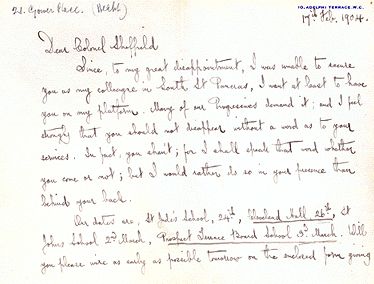 21. Gower Place. (Beebs)
10, ADELPHI TERRACE. W.C.
17th Feb. 1904.
Dear Colonel Sheffield
Since, to my great disappointment, I was unable to secure
you as my colleague in South St Pancras, I want at least to have
you on my platform. Many of our Progressives demand it; and I feel
strongly that you should not disappear without a word as to your
services. In fact, you shan't; for I shall speak that word whether
you come or not; but I would rather do so in your presence than
behind your back.
Our dates are, St Jude's School, 24th, Cleveland Hall, 26th, St
John's School 2nd March, Prospect Terrace Board School 3rd March. Will
you please wire as early as possible tomorrow on the enclosed form giving